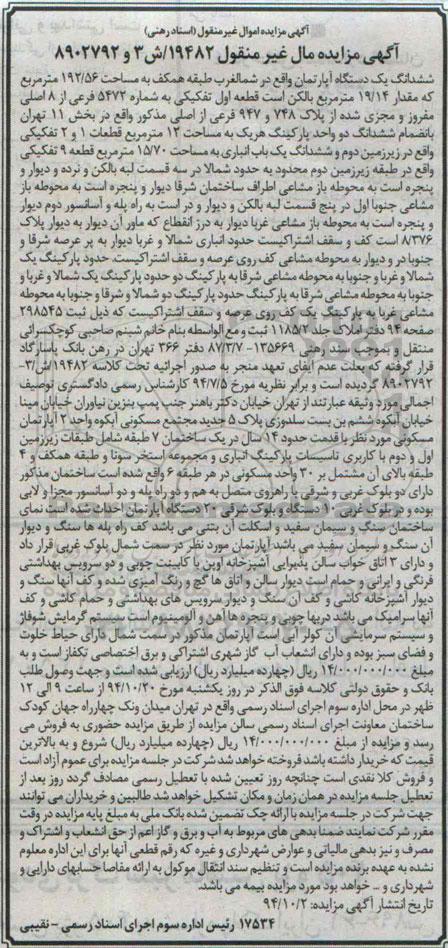 آگهی مزایده اموال غیر منقول (اسناد رهنی)
آگهی مزایده مال غیر منقول ۱۹۴۸۲/ش۳ و ۸۹۰۲۷۹۲
ششدانگ یک دستگاه آپارتمان واقع در شمالغرب طبقه همکف به مساحت ۱۹۲/۵۶ مترمربع
که مقدار ۱۹/۱۴ مترمربع بالکن است قطعه اول تفکیکی به شماره ۵۴۷۲ فرعی از ۸ اصلی
مفروز و مجزی شده از پلاک ۷۴۸ و ۹۴۷ فرعی از اصلی مذکور واقع در بخش ۱۱ تهران
بانضمام ششدانگ دو واحد پارکینگ هریک به مساحت ۱۲ مترمربع قطعات ۱ و ۲ تفکیکی
واقع در زیرزمین دوم و ششدانگ یک باب انباری به مساحت ۱۵/۷۰ مترمربع قطعه ۹ تفکیکی
واقع در طبقه زیرزمین دوم محدود به حدود شمالا در سه قسمت لبه بالکن و نرده و دیوار و
پنجره است به محوطه باز مشاعی اطراف ساختمان شرقا دیوار و پنجره است به محوطه باز
مشاعی جنوبا اول در پنج قسمت لبه بالکن و دیوار و در است به راه پله و آسانسور دوم دیوار
و پنجره است به محوطه باز مشاعی غربا دیوار به درز انقطاع که ماور آن دیوار به دیوار پلاک
۸/۳۷۶ است کف و سقف اشتراکیست حدود انباری شمالا و غربا دیوار به پر عرصه شرقا و
جنوبا در و دیوار به محوطه مشاعی کف روی عرصه و سقف اشتراکیست. حدود پارکینگ یک
شمالا و غربا و جنوبا به محوطه مشاعی شرقا به پارکینگ دو حدود پارکینگ یک شمالا و غربا و
جنوبا به محوطه مشاعی شرقا به پارکینگ حدود پارکینگ دو شمالا و شرقا و جنوبا به محوطه
مشاعی غربا به پارکینگ یک کف روی عرصه و سقف اشتراکیست که ذیل ثبت ۲۹۸۵۴۵
صفحه ۹۴ دفتر املاک جلد ۱۱۸۵/۲ ثبت و مع الواسطه بنام خانم شبنم صاحبی کوچکسرائی
منتقل و بموجب سند رهنی ۱۳۵۶۶۹- ۸۷/۳/۷ دفتر ۳۶۶ تهران در رهن بانک پاسارگاد
قرار گرفته که بعلت عدم ایفای تعهد منجر به صدور اجرائیه تحت کلاسه ۱۹۴۸۲/ش/۳-
۸۹۰۲۷۹۲ گردیده است و برابر نظریه مورخ ۹۴/۷/۵ کارشناس رسمی دادگستری توصیف
اجمالی مورد وثیقه عبارتند از تهران خیابان دکتر باهنر جنب پمپ بنزین نیاوران خیابان مینا
خیابان آبکوه ششم بن بست سلدوزی پلاک ۵ جدید مجتمع مسکونی آبکوه واحد ۲ آپارتمان
مسکونی مورد نظر با قدمت حدود ۱۴ سال در یک ساختمان ۷ طبقه شامل طبقات زیرزمین
اول و دوم با کاربری تاسیسات پارکینگ انباری و مجموعه استخر سونا و طبقه همکف و ۴
طبقه بالای آن مشتمل بر ۳۰ واحد مسکونی در هر طبقه ۶ واقع شده است ساختمان مذکور
دارای دو بلوک غربی و شرقی با راهروی متصل به هم و دو راه پله و دو آسانسور مجزا و لابی
بوده و در بلوک غربی ۱۰ دستگاه و بلوک شرقی ۲۰ دستگاه آپارتمان احداث شده است نمای
ساختمان سنگ و سیمان سفید و اسکلت آن بتنی می باشد کف راه پله ها سنگ و دیوار
آن سنگ و سیمان سفید می باشد آپارتمان مورد نظر در سمت شمال بلوک غربی قرار داد
و دارای ۳ اتاق خواب سالن پذیرایی آشپزخانه اوپن با کابینت چوبی و دو سرویس بهداشتی
فرنگی و ایرانی و حمام است دیوار سالن و اتاق ها گچ و رنگ آمیزی شده و کف آنها سنگ و
دیوار آشپزخانه کاشی و کف آن سنگ و دیوار سرویس های بهداشتی و حمام کاشی و کف
آنها سرامیک می باشد دربها چوبی و پنجره ها آهن و آلومینیوم است سیستم گرمایش شوفاژ
و سیستم سرمایشی آن کولر آبی است آپارتمان مذکور در سمت شمال دارای حیاط خلوت
و فضای سبز بوده و دارای انشعاب آب گاز شهری اشتراکی و برق اختصاصی تکفاز است و به
مبلغ ۱۴/۰۰۰/۰۰۰/۰۰۰ ریال (چهارده میلیارد ریال) ارزیابی شده است و جهت وصول طلب
بانک و حقوق دولتی کلاسه فوق الذکر در روز یکشنبه مورخ ۹۴/۱۰/۲۰ از ساعت ۹ الی ۱۲
ظهر در محل اداره سوم اجرای اسناد رسمی واقع در تهران میدان ونک چهارراه جهان کودک
ساختمان معاونت اجرای اسناد رسمی سالن مزایده از طریق مزایده حضوری به فروش می
رسد و مزایده از مبلغ ۱۴/۰۰۰/۰۰۰/۰۰۰ ریال (چهارده میلیارد ریال) شروع و به بالاترین
قیمت که خریدار داشته باشد فروخته خواهد شد شرکت در جلسه مزایده برای عموم آزاد است
و فروش کلا نقدی است چنانچه روز تعیین شده با تعطیل رسمی مصادف گردد روز بعد از
تعطیل جلسه مزایده در همان زمان و مکان تشکیل خواهد شد طالبین و خریداران می توانند
جهت شرکت در جلسه مزایده با ارائه چک تضمین شده بانک ملی به مبلغ پایه مزایده در وقت
مقرر شرکت نمایند ضمنا بدهی های مربوط به آب و برق و گاز اعم از حق انشعاب و اشتراک و
مصرف و نیز بدهی مالیاتی و عوارض شهرداری و غیره که رقم قطعی آنها برای این اداره معلوم
نشده به عهده برنده مزایده است و تنظیم سند انتقال موکول به ارائه مفاصا حسابهای دارایی و
شهرداری و ... خواهد بود مورد مزایده بیمه می باشد.
تاریخ انتشار آگهی مزایده: ۹۴/۱۰/۲
۱۷۵۳۴ رئیس اداره سوم اجرای اسناد رسمی - نقیبی